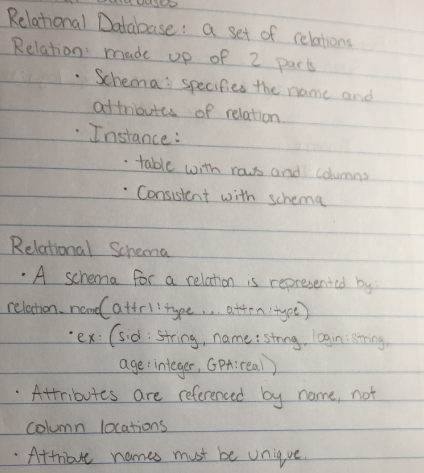 Databases
Relational Database: a set of relations
Relation: made up of 2 parts
• Schema: specifies the name and
attributes of relation
• Instance:
• table with rows and columns
• Consistent with schema
Relational Schema
• A schema for a relation is represented by:
relation_name(attr1:type ... attrn:type)
• ex: (sid: string, name: string, login: string,
age: integer, GPA: real)
• Attributes are referenced by name, not
column locations
• Attribute names must be unique.